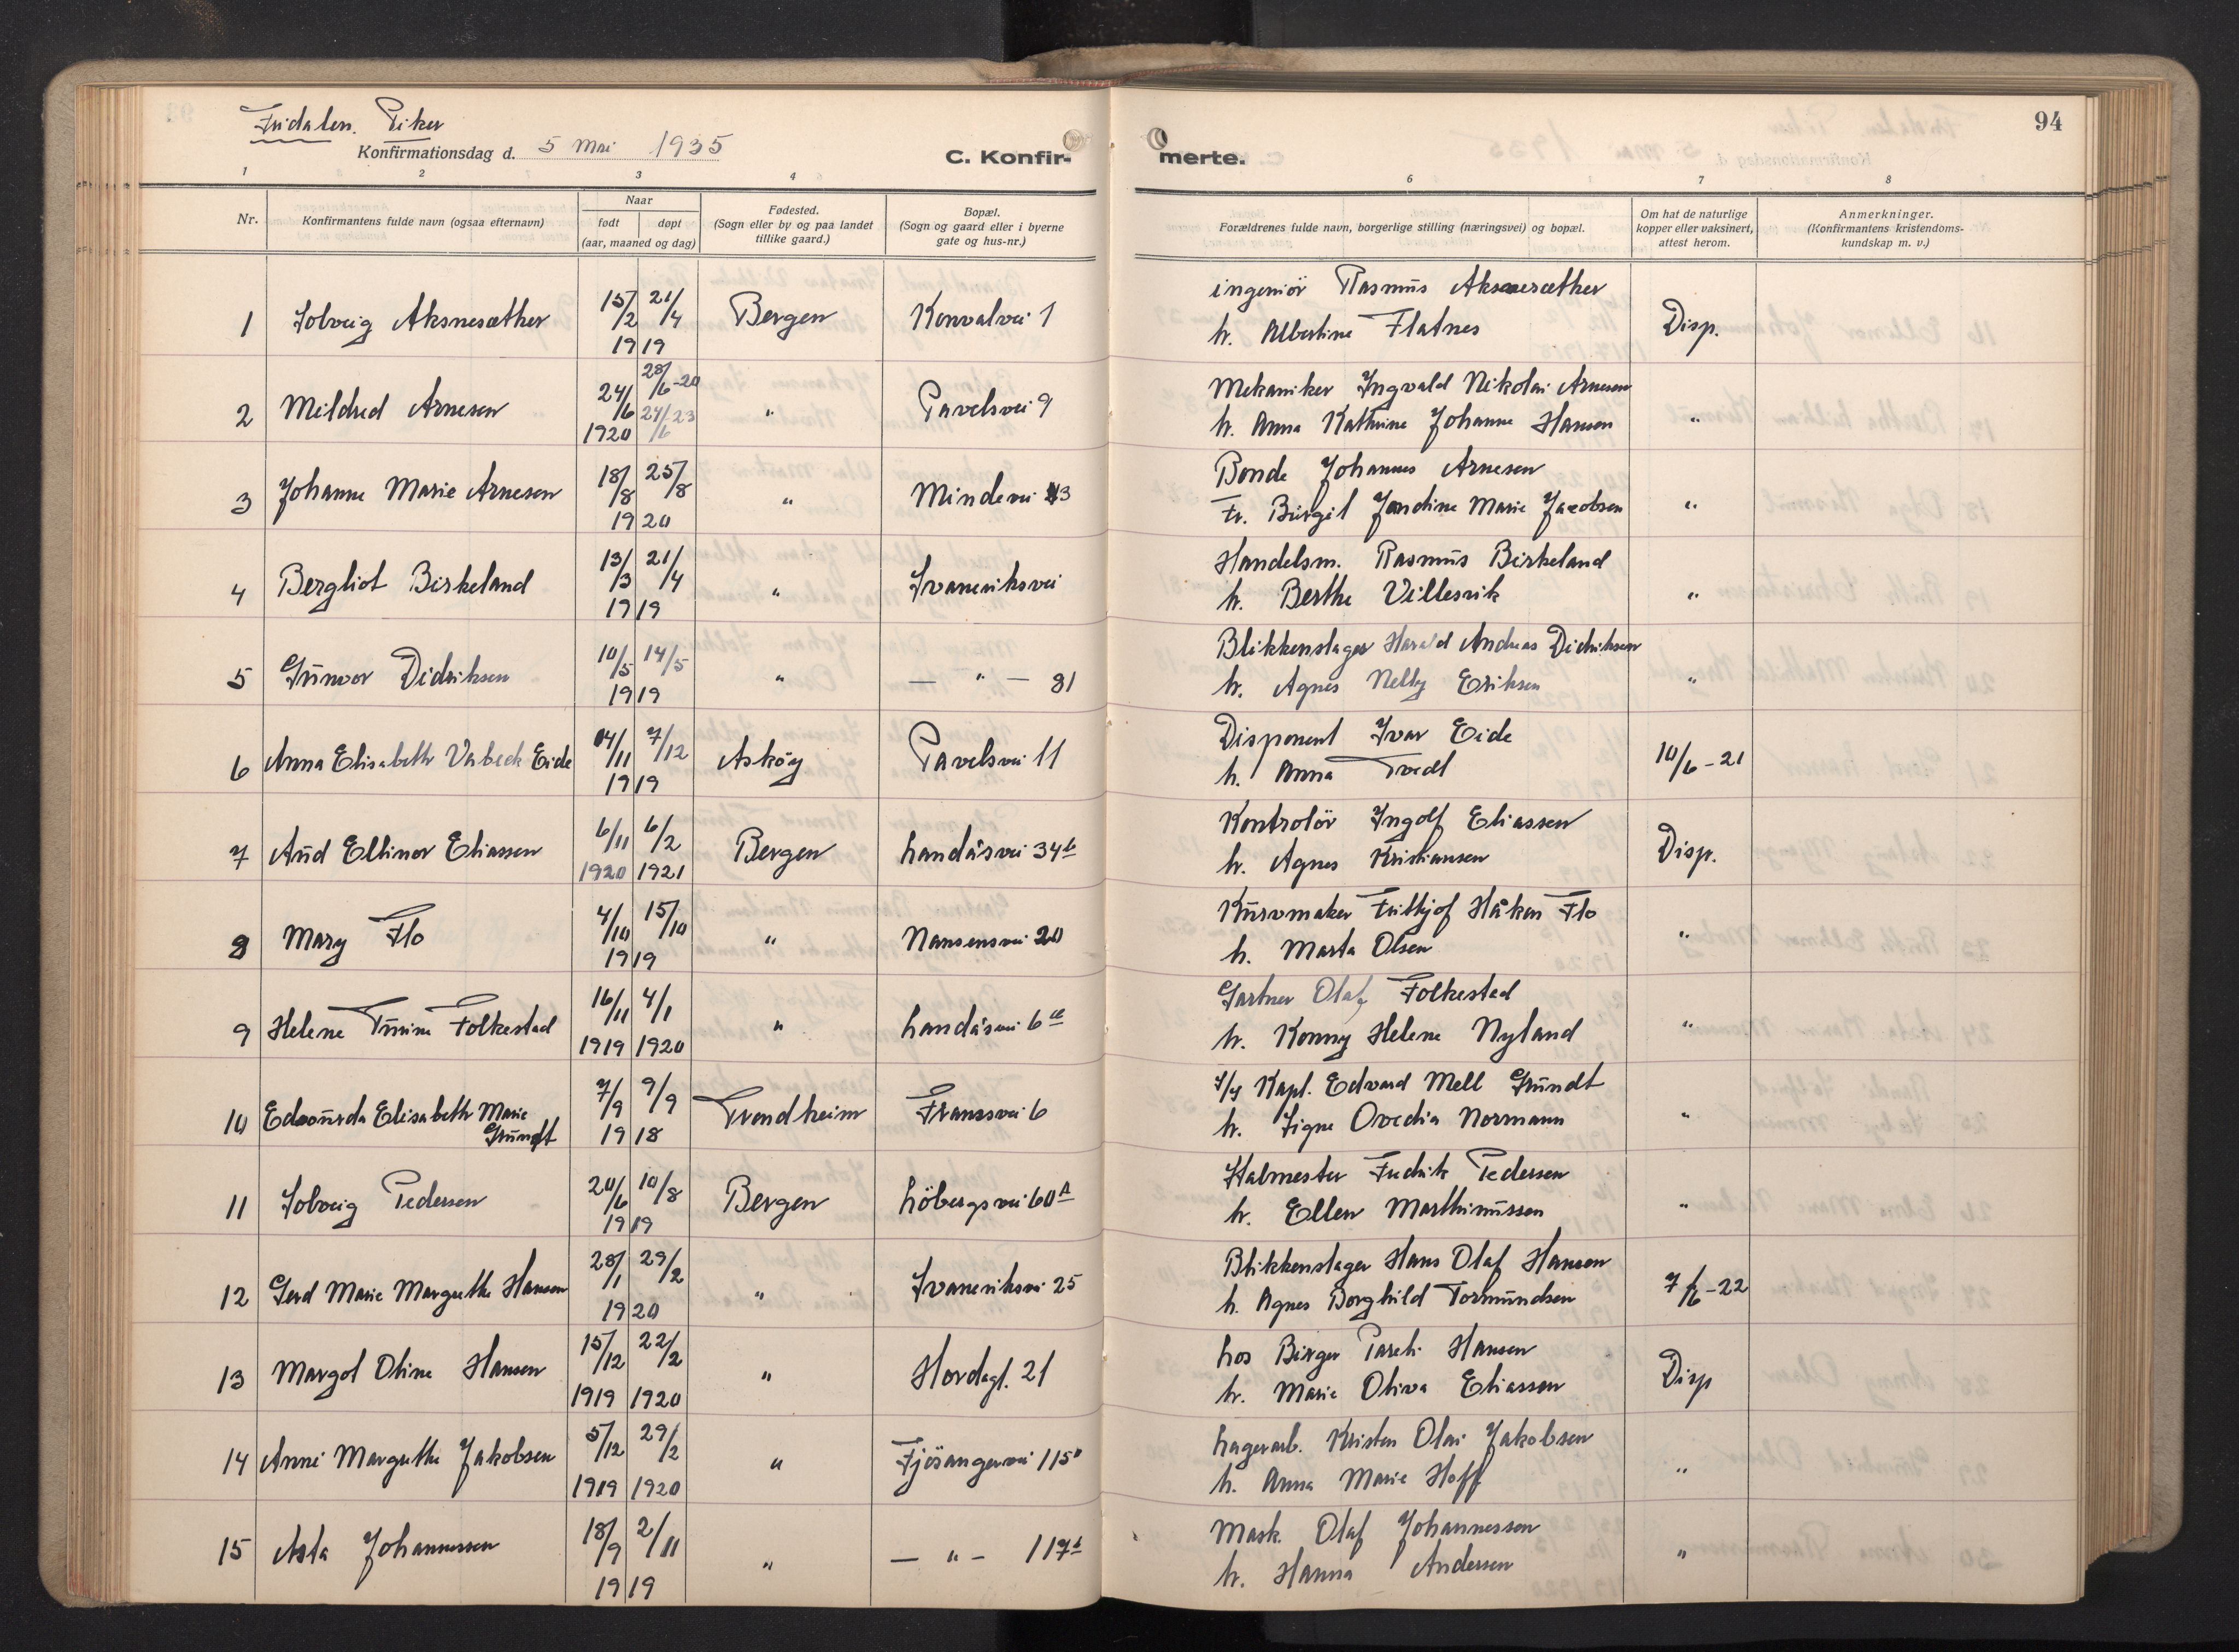 Fridalen. Piker
Konfirmationsdag d. 5 Mai 1935
C. Konfir-
merte.
94
1 2 3 4 6 7 8
Nr.
Konfirmantens fulde navn (ogsaa efternavn)
Naar
født døpt
(aar, maaned og dag)
Fødested.
(Sogn eller by og paa landet
tillike gaard.)
Bopæl.
(Sogn og gaard eller i byerne
gate og hus-nr.)
Forældrenes fulde navn, borgerlige stilling (næringsvei) og bopæl.
Om hat de naturlige
kopper eller vaksinert,
attest herom.
Anmerkninger.
(Konfirmantens kristendoms-
kundskap m. v.)
1 Solveig Aksnesæther 15/2 21/4 1919 Bergen Konvalvei 1
ingeniör Rasmus Aksnesæther
h. Albertine Flatnes Disp.
2 Mildred Arnesen 24/6 1920 28/6-20 24/6 23 " Pavelsvei 9
Mekaniker Ingvald Nikolai Arnesen
h. Anna Kathrine Johanne Hansen "
3 Johanne Marie Arnesen 18/8 25/8 1920 " Mindevei 43
Bonde Johannes Arnesen
Fr. Birgit Jondine Marie Jacobsen "
4 Bergliot Birkeland 13/3 21/4 1919 " Ivaneriksvei
Handelsm. Rasmus Birkeland
h. Berthe Villesvik "
5 Gunvor Didriksen 10/5 14/5 1919 " — " — 81
Blikkenslager Harald Andreas Didriksen
h. Agnes Nelly Eriksen "
6 Anna Elisabeth Vebeck Eide 04/11 7/12 1919 Asköy Pavelsvei 11
Disponent Ivar Eide
h. Anna Tvedt 10/6-21
7 Aud Ellinor Eliassen 6/11 1920 6/2 1921 Bergen Landåsvei 34b
Kontrolör Ingolf Eliassen
h. Agnes Kristiansen Disp.
8 Mary Flo 4/10 15/10 1919 " Nansensvei 20
Kurvmaker Frithjof Håken Flo
h. Marta Olsen "
9 Helene Tunine Folkestad 16/11 1919 4/1 1920 " Landåsvei 6a
Gartner Olaf Folkestad
h. Konny Helene Nyland "
10 Edvarda Elisabeth Marie
Grundt 7/9 9/9 1918 Trondheim Fransvei 6
Kapt. Edvard Mell Grundt
h. Signe Ovedia Normann "
11 Solveig Pedersen 20/6 10/8 1919 Bergen Löbergsvei 60A
Stalmester Fredrik Pedersen
h. Ellen Marthinussen "
12 Gerd Marie Margrethe Hansen 28/1 29/2 1920 " Ivaneriksvei 25
Blikkenslager Hans Olaf Hansen
h. Agnes Borghild Tormundsen 7/6-22
13 Margot Oline Hansen 15/12 1919 22/2 1920 " Hordagt. 21
Los Birger Hansen
h. Marie Oliva Eliassen Disp
14 Anni Margrethe Jakobsen 5/12 1919 29/2 1920 " Fjösangervei 115
Lagerarb. Kristen Olai Jakobsen
h. Anna Marie Hoff "
15 Asta Johannessen 18/9 2/11 1919 " — " — 117
Mask. Olaf Johannessen
h. Hanna Andersen "